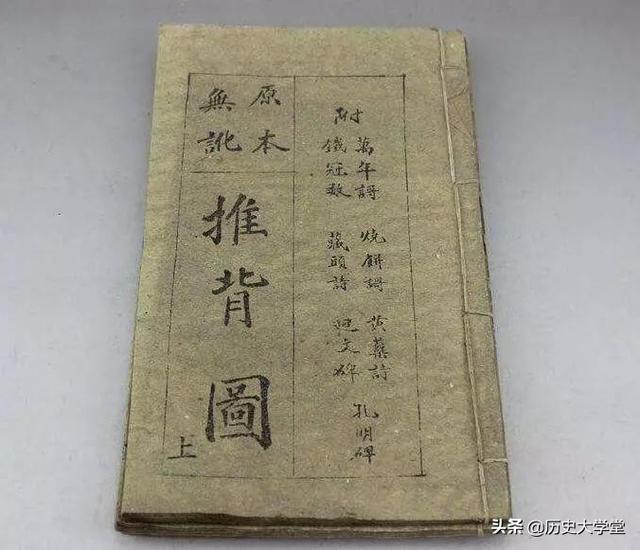 附
萬年謌 燒餅謌 黃蘗詩 孔明碑
鐵冠數 藏頭詩 廻文碑
原本
無訛
推背圖
上
头条 @历史大学堂